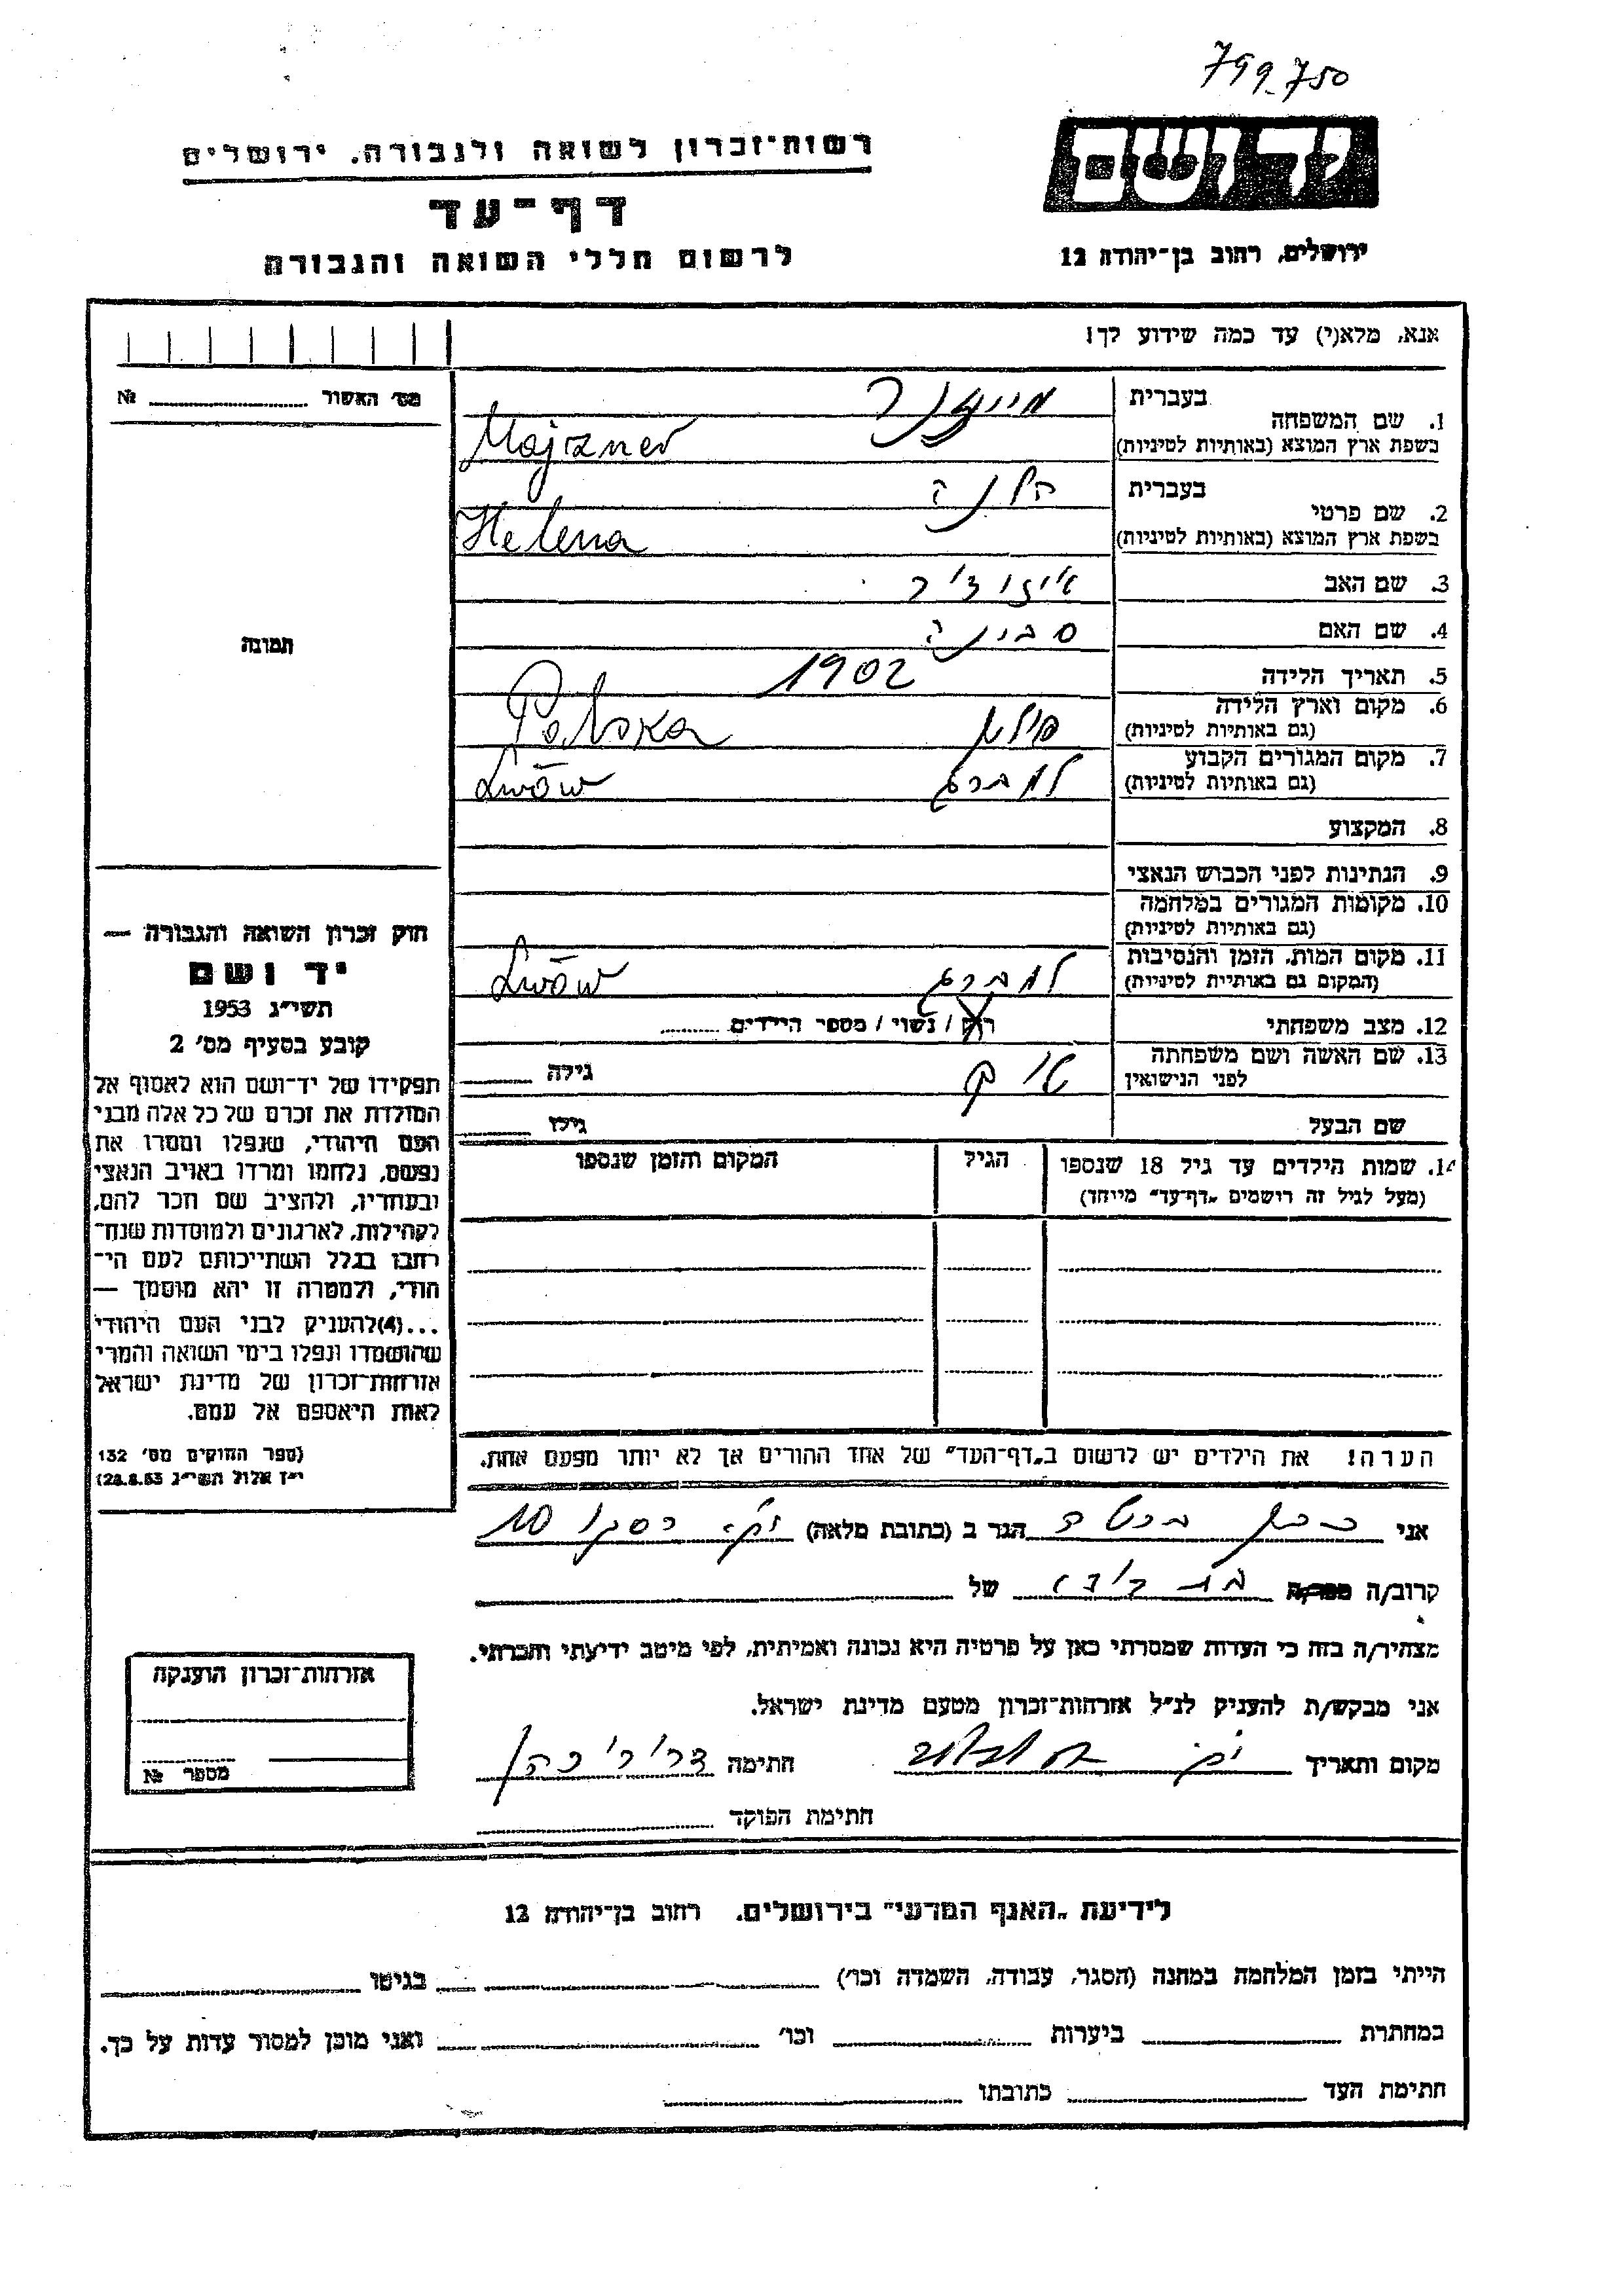 799.750
יד ושם
רשות־זכרון לשואה ולגבורה. ירושלים
דף־עד
לרשום חללי השואה והגבורה
ירושלים, רחוב בן־יהודה 12
אנא, מלא(י) עד כמה שידוע לך!
מס׳ האשור № 
בעברית
1. שם המשפחה
בשפת ארץ המוצא (באותיות לטיניות)
Majzner
בעברית הלנה
2. שם פרטי
בשפת ארץ המוצא (באותיות לטיניות)
Helena
3. שם האב איזידור
4. שם האם סבינה
5. תאריך הלידה 1902
6. מקום וארץ הלידה
(גם באותיות לטיניות) פולין Polska
7. מקום המגורים הקבוע
(גם באותיות לטיניות) למברג Lwów
8. המקצוע
9. הנתינות לפני הכבוש הנאצי
10. מקומות המגורים במלחמה
(גם באותיות לטיניות)
11. מקום המות, הזמן והנסיבות
(המקום גם באותיית לטיניות) למברג Lwów
12. מצב משפחתי רוק / נשוי / מספר הילדים
13. שם האשה ושם משפחתה
לפני הנישואין גילה
שם הבעל גילו
14. שמות הילדים עד גיל 18 שנספו הגיל המקום והזמן שנספו
(מעל לגיל זה רושמים „דף־עד״ מייחד)
הערה! את הילדים יש לרשום ב„דף־העד״ של אחד ההורים אך לא יותר מפעם אחת.
תמונה
חוק זכרון השואה והגבורה —
יד ושם
תשי״ג 1953
קובע בסעיף מס׳ 2
תפקידו של יד־ושם הוא לאסוף אל
המולדת את זכרם של כל אלה מבני
העם היהודי, שנפלו ומסרו את
נפשם, נלחמו ומרדו באויב הנאצי
ובעוזריו, ולהציב שם וזכר להם,
לקהילות, לארגונים ולמוסדות שנח־
רבו בגלל השתייכותם לעם הי־
הודי, ולמטרה זו יהא מוסמך —
...(4)להעניק לבני העם היהודי
שהושמדו ונפלו בימי השואה והמרי
אזרחות־זכרון של מדינת ישראל
לאות היאספם אל עמם.
(ספר החוקים מס׳ 132
י״ז אלול תשי״ג 28.8.53)
אני הגר ב (כתובת מלאה) 10
קרוב/ה בת דודה של
מצהיר/ה בזה כי העדות שמסרתי כאן על פרטיה היא נכונה ואמיתית, לפי מיטב ידיעתי והכרתי.
אני מבקש/ת להעניק לנ״ל אזרחות־זכרון מטעם מדינת ישראל.
מקום ותאריך חתימה
חתימת הפוקד
אזרחות־זכרון הוענקה
מספר №
לידיעת „האגף המדעי״ בירושלים. רחוב בן־יהודה 12
הייתי בזמן המלחמה במחנה (הסגר, עבודה, השמדה וכו׳) בגיטו
במחתרת ביערות וכו׳ ואני מוכן למסור עדות על כך.
חתימת העד כתובתו